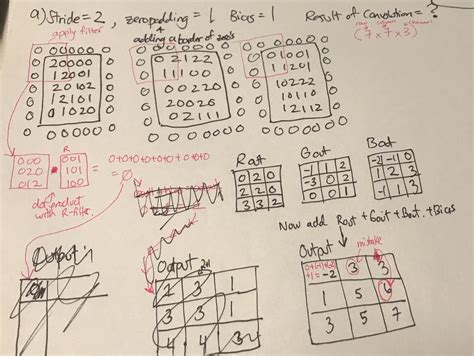 a) Stride = 2, zeropadding = 1, Bias = 1 Result of Convolution = ?
apply filter
adding a border of zero's
(7 x 7 x 3)
0 0 0 0 0 0 0
0 2 0 0 0 0 0
0 1 2 0 0 1 0
0 2 0 1 0 2 0
0 1 2 1 0 1 0
0 0 1 0 2 0 0
0 0 0 0 0 0 0
0 2 1 2 2
1 1 1 0 0
0 0 2 2 0
2 0 0 2 0
0 2 1 1 1
1 0 2 2 2
1 0 1 1 0
1 2 1 1 2
000
020
012
R
001
101
100
= 0+0+0+0+0+0+0+0
= 0
dot product
with R-filter.
Rout
0 2 0
2 2 0
3 3 2
Gout
-1 1 2
-3 0 2
0 0 1
Bout
-2 -1 0
1 1 3
Now add Rout + Gout + Bout + Bias
Output
mistake
+1 = -2 3 3
1 5 6
3 5 7
Output
3 1
3 1
4 4 3
Output